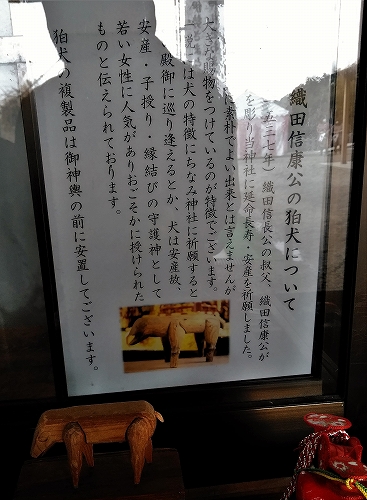 織田信康公の狛犬について
五三七年）織田信長公の叔父、織田信康公が
を彫り当神社に延命長寿・安産を祈願しました。
に素朴でよい出来とは言えませんが
大きな賜物をつけているのが特徴でございます。
一説には犬の特徴にちなみ神社に祈願すると
殿御に巡り逢えるとか、犬は安産故、
安産・子授り・縁結びの守護神として
若い女性に人気がありおごそかに授けられた
ものと伝えられております。
狛犬の複製品は御神輿の前に安置してございます。